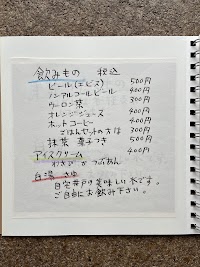 飲みもの 税込
ビール(エビス) 500円
ノンアルコールビール 400円
ウーロン茶 300円
オレンジジュース 400円
ホットコーヒー 400円
ごはんセットの方は 300円
抹茶 菓子つき 500円
アイスクリーム 400円
わさび かつぶあん
白湯 さゆ
自宅井戸の美味しい水です。
ご自由にお飲み下さい。